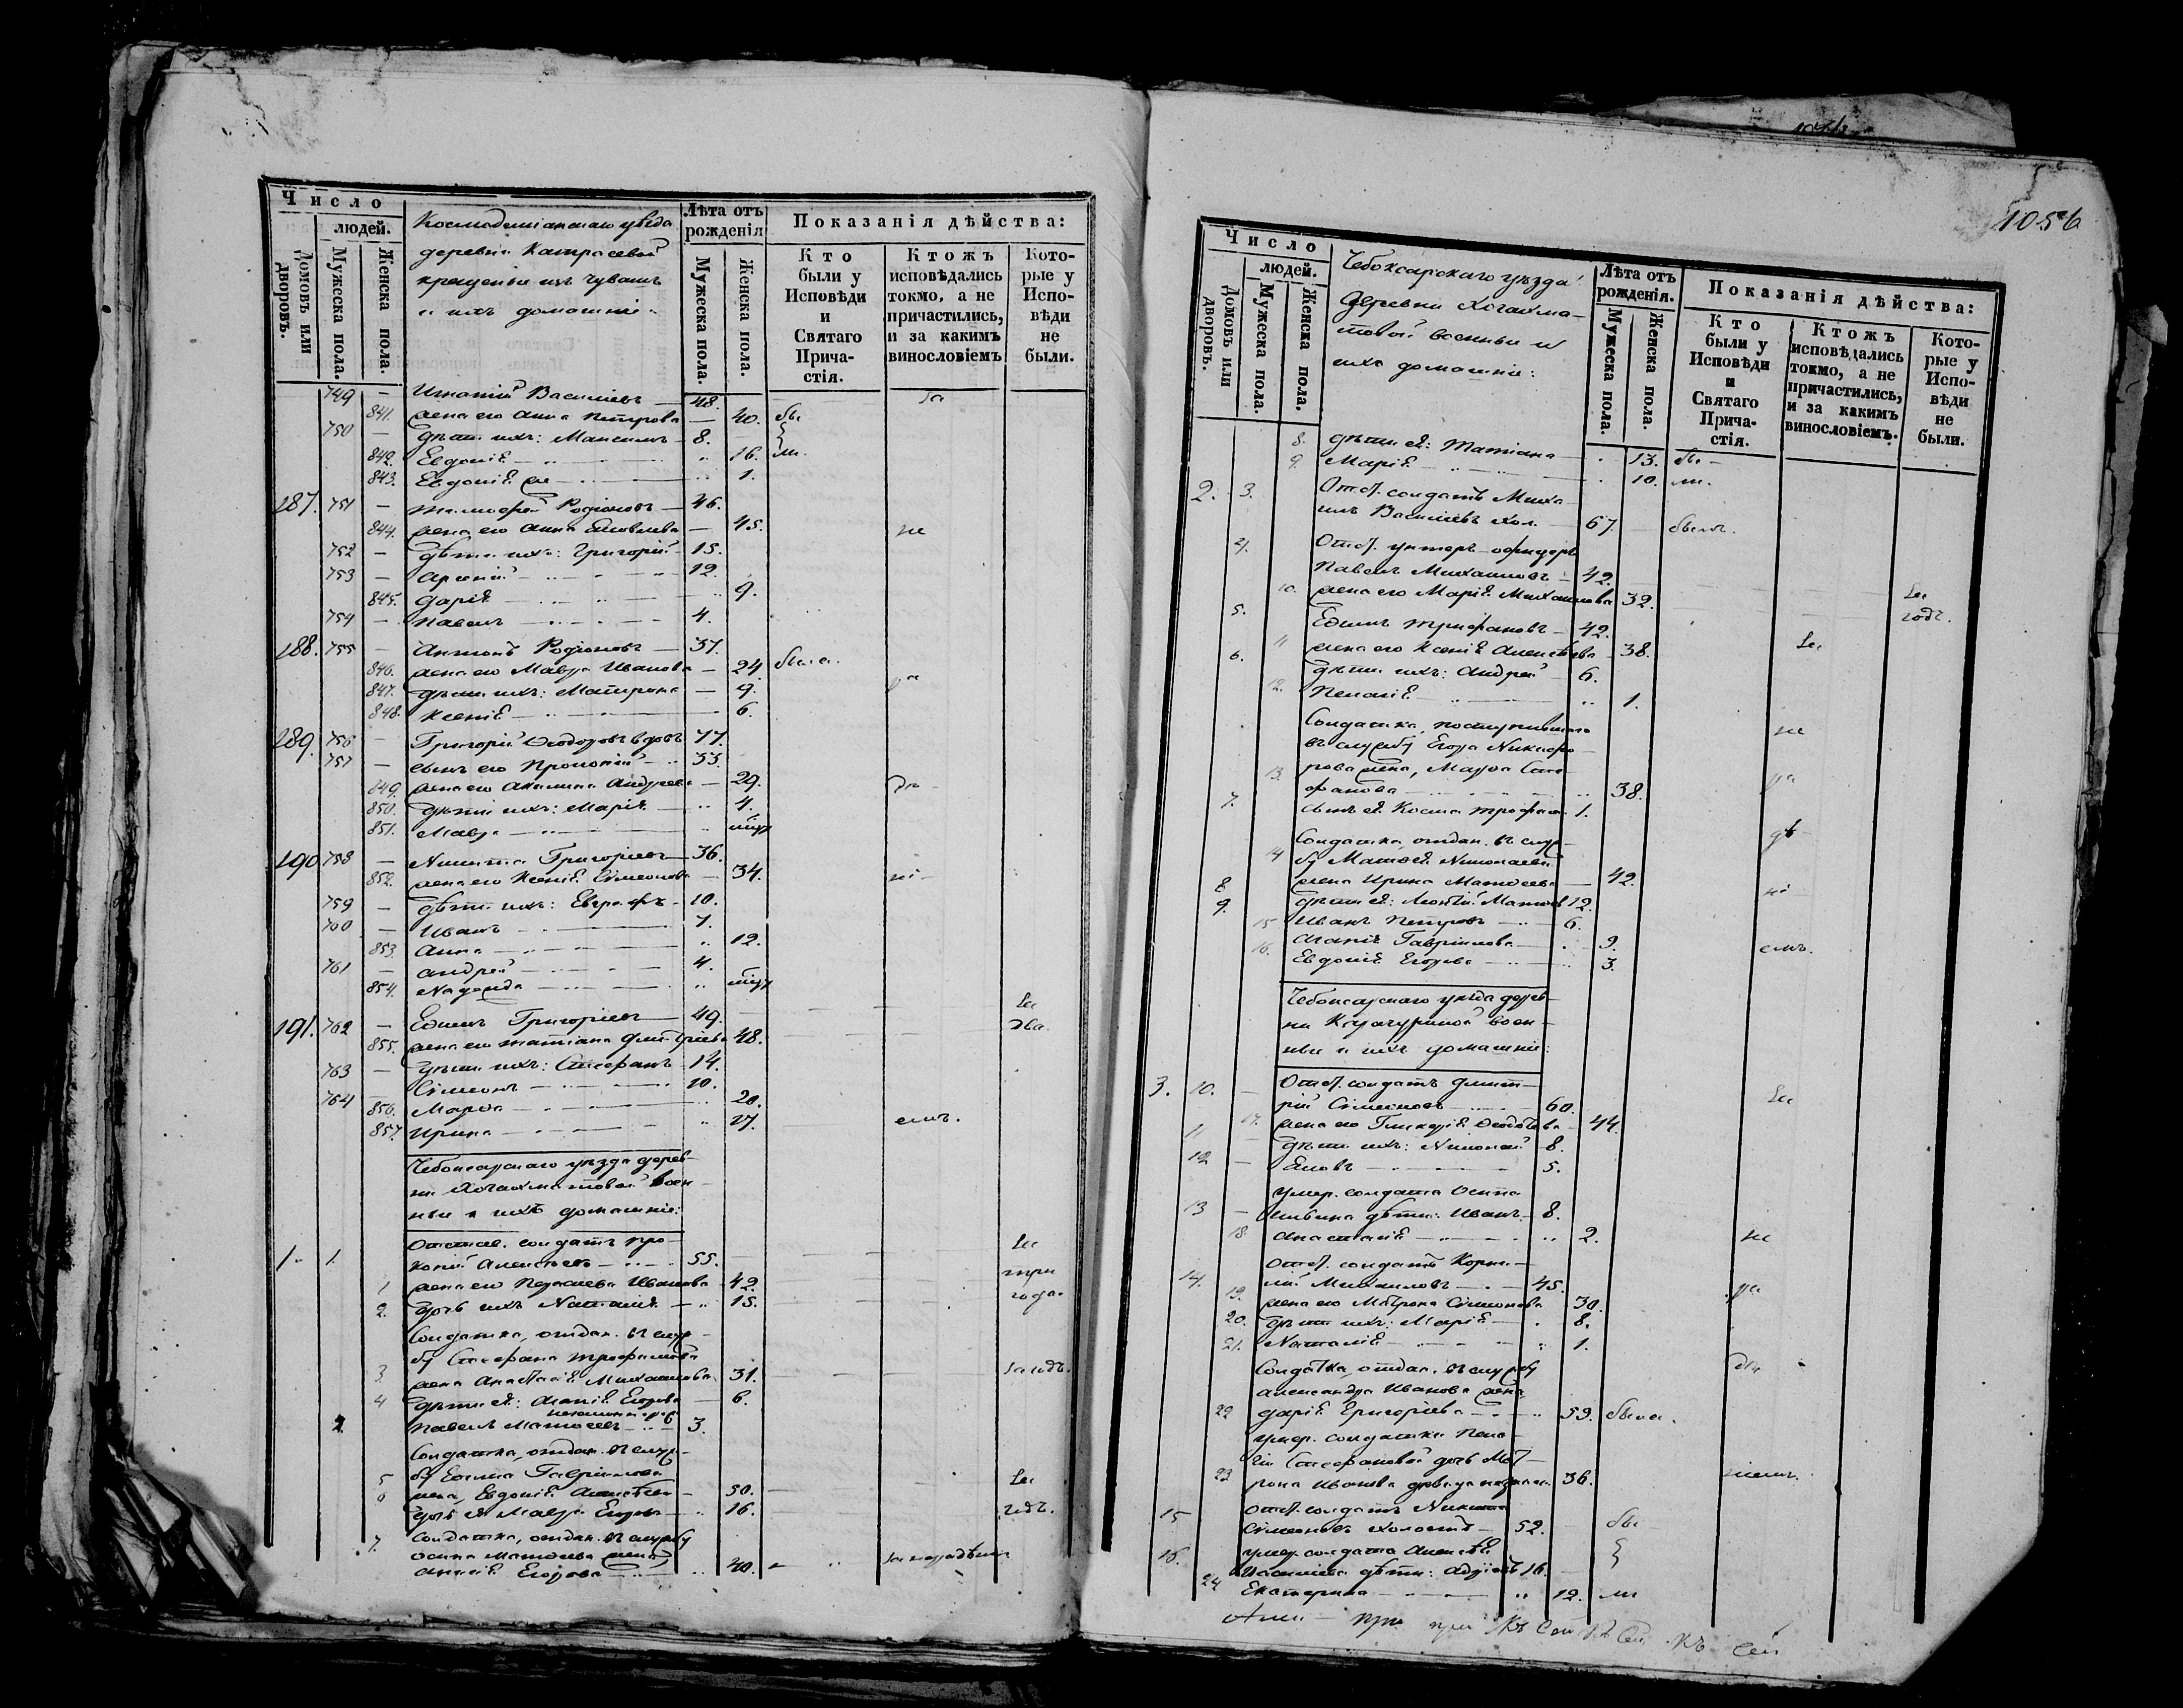 Число
людей.
Домовъ или дворовъ.
Мужеска пола.
Женска пола.
Космодеміанскаго уѣзда
деревни Катрасевой
крещеные изъ чувашъ
и ихъ домашніе.
Лѣта отъ рожденія
Мужеска пола.
Женска пола.
Показанія дѣйства:
Кто были у Исповѣди и Святаго Причастія.
Ктожъ исповѣдались токмо, а не причастились, и за какимъ винословіемъ
Которые у Исповѣди не были.
749 — Игнатій Васильевъ — 48. за
841. жена его Анна Петрова — 40. бы
750 — дѣти ихъ: Максимъ — 8.
842. Евдокія 16. ли.
843. Евдокія же 1.
187. 751 — Тимофей Родіоновъ — 46.
844. жена его Анна Яковлева — 45. не
752 — дѣти ихъ: Григорій — 15.
753 — Арсеній 12.
845. Дарія 9.
754 — Павелъ 4.
188. 755 — Антонъ Родіоновъ — 37.
846. жена его Мавра Иванова — 24. была.
847. дѣти ихъ: Матрона — 9. ра
848. Ксенія 6.
189. 756 — Григорій Ѳеодоровъ вдовъ 77.
757 — сынъ его Прокопій 33.
849. жена его Акилина Андреева — 29. дѣ
850. дѣти ихъ: Марія 4.
851. Мавра
190. 758 — Никита Григорьевъ — 36.
852. жена его Ксенія Сѵмеонова — 34. ні
759 — дѣти ихъ: Евграфъ 10.
760 — Иванъ 7.
853. Анна 12.
761 — Андрей 4.
854. Надежда
За
191. 762 — Ефимъ Григорьевъ — 49. два
855. жена его Татіана Дмитріева 48.
763 — дѣти ихъ: Стефанъ 14.
764 Сѵмеонъ 10.
856. Марѳа 20.
857. Ирина 17. емъ.
Чебоксарскаго уѣзда дерев-
ни Хочахматовой воен-
ные и ихъ домашніе:
Отстав. солдатъ Про- За
1. 1. копій Алексѣевъ 55. три
1 жена его Пелагіева Иванова 42. года.
2. дочь ихъ Наталія 15.
Солдатка, отдан. въ служ-
бу Стефана Трофимова
3 жена Анастасія Михайлова 31. за годъ.
4 дѣти ея: Агаѳія Егорова 6.
незаконнорож
2. Павелъ Матѳеевъ 3.
Солдатка, отдан. въ служ-
бу Ефима Гавріилова
5 жена, Евдокія Алексѣева — 50. За
6 дочь ея Мавра Егорова 16. годъ.
7. Солдатка, отдан. въ службу
Осипа Матѳеева жена
Егорова 40. за нерадѣніемъ
1056
Число
людей.
Домовъ или дворовъ.
Мужеска пола.
Женска пола.
Чебоксарскаго уѣзда
деревни Хочахма-
товой военные и
ихъ домашніе:
Лѣта отъ рожденія.
Мужеска пола.
Женска пола.
Показанія дѣйства:
Кто были у Исповѣди и Святаго Причастія.
Ктожъ исповѣдались токмо, а не причастились, и за какимъ винословіемъ.
Которые у Исповѣди не были.
8. дѣти ея: Татіана 13. бы —
9. Марія 10. ли.
2. 3. Отст. солдатъ Миха-
илъ Васильевъ хол. — 67. былъ.
4. Отст. унтеръ-офицеръ
Павелъ Михайловъ — 42.
10. жена его Марія Михайлова 32. За
5. Ефимъ Трифановъ — 42. годъ.
11 жена его Ксенія Алексѣева 38. За
6. дѣти ихъ: Андрей — 6.
12. Пелагія 1.
Солдатка, поступившаго
въ службу Егора Никифо- не
13. рова жена, Марѳа Сте-
фанова 38. ра
7. сынъ ея Косма Трофим. 1.
Солдатка, отдан. въ служ- дѣ
14 бу Матѳея Николаева
жена Ирина Матѳеева — 42.
8 дѣти ея: Леонтій Матѳеев 12. ні
9. Иванъ Петровъ 6.
15 Гавріилова 9.
16. Евдокія Егорова 3. емъ.
Чебоксарскаго уѣзда дерев-
ни воен-
ные и ихъ домашніе:
3. 10. — Отст. солдатъ Димит-
рій Сѵмеоновъ 60. За
17. жена его Гликерія Ѳеодотова — 44.
11 дѣти ихъ: Николай 8.
12 — Яковъ 5.
Умер. солдата Осипа
13 — дѣти: Иванъ 8.
18. Анастасія 2. не
Отст. солдатъ Корни-
14. лій Михаиловъ — 45.
19. жена его Матрона Сѵмеонова 30. ра
20. дѣти ихъ: Марія 8.
21. Наталія 1.
Солдатка, отдан. въ службу дѣ
Александра Иванова жена
22 Дарія Григорьева 59. была.
Умер. солдатки Пела-
гіи Стефановой дочь Мат-
23 рона Иванова 36. ніемъ.
15 Отст. солдатъ Никита
Сѵмеоновъ холостъ — 52. бы
16. умер. солдата Алексѣя
Васильева дѣти: 16.
24 Екатерина 12. ли